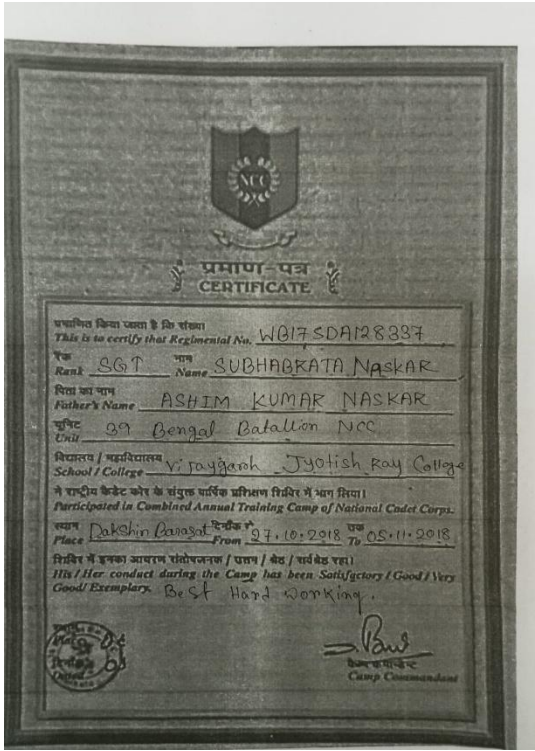 NCC
प्रमाण-पत्र
CERTIFICATE
प्रमाणित किया जाता है कि संख्या
This is to certify that Regimental No. WB17SDA128337
रैंक नाम
Rank SGT Name SUBHABRATA NASKAR
पिता का नाम
Father's Name ASHIM KUMAR NASKAR
यूनिट
Unit 39 Bengal Batallion NCC
विद्यालय / महाविद्यालय
School / College Vijaygarh Jyotish Ray College
ने राष्ट्रीय कैडेट कोर के संयुक्त वार्षिक प्रशिक्षण शिविर में भाग लिया।
Participated in Combined Annual Training Camp of National Cadet Corps.
स्थान दिनाँक से तक
Place Dakshin Barasat From 27.10.2018 To 05.11.2018
शिविर में इनका आचरण संतोषजनक / उत्तम / श्रेष्ठ / सर्वश्रेष्ठ रहा।
His / Her conduct during the Camp has been Satisfactory / Good / Very
Good / Exemplary. Best Hard working.
Place
दिनाँक
Dated
कैम्प कमान्डेन्ट
Camp Commandant